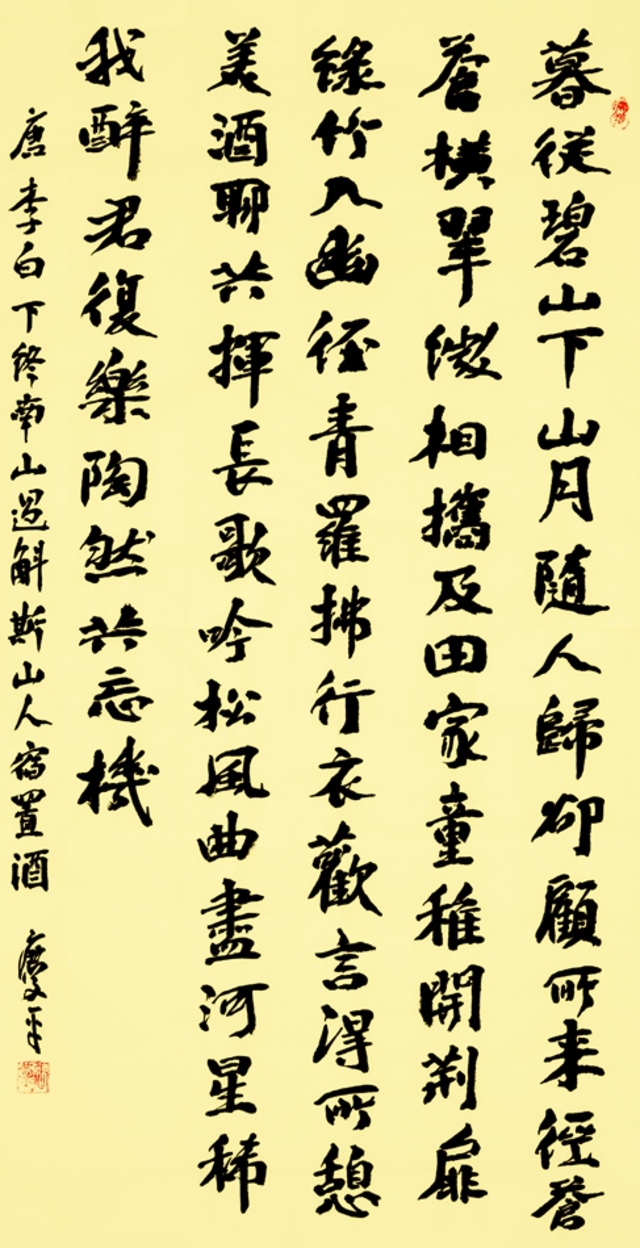 暮從碧山下山月隨人歸卻顧所來徑蒼
蒼橫翠微相攜及田家童稚開荊扉
綠竹入幽徑青羅拂行衣歡言得所憩
美酒聊共揮長歌吟松風曲盡河星稀
我醉君復樂陶然共忘機
唐李白下終南山過斛斯山人宿置酒